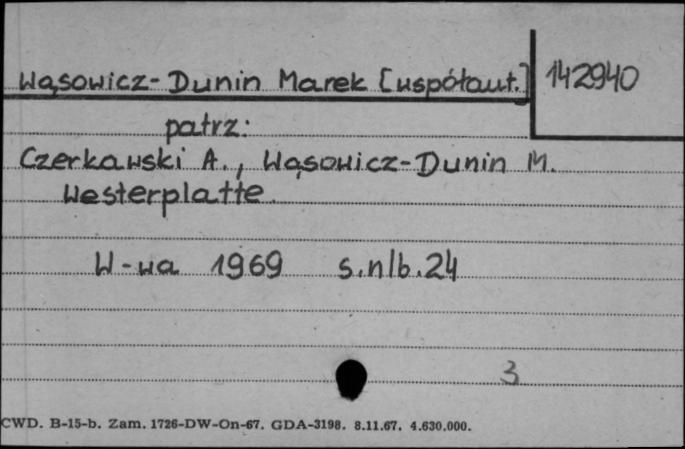 Wąsowicz-Dunin Marek [współaut.] 142940
patrz:
Czerkawski A., Wąsowicz-Dunin M.
Westerplatte.
W-wa 1969 s.nlb.24
3
CWD. B-15-b. Zam. 1726-DW-On-67. GDA-3198. 8.11.67. 4.630.000.